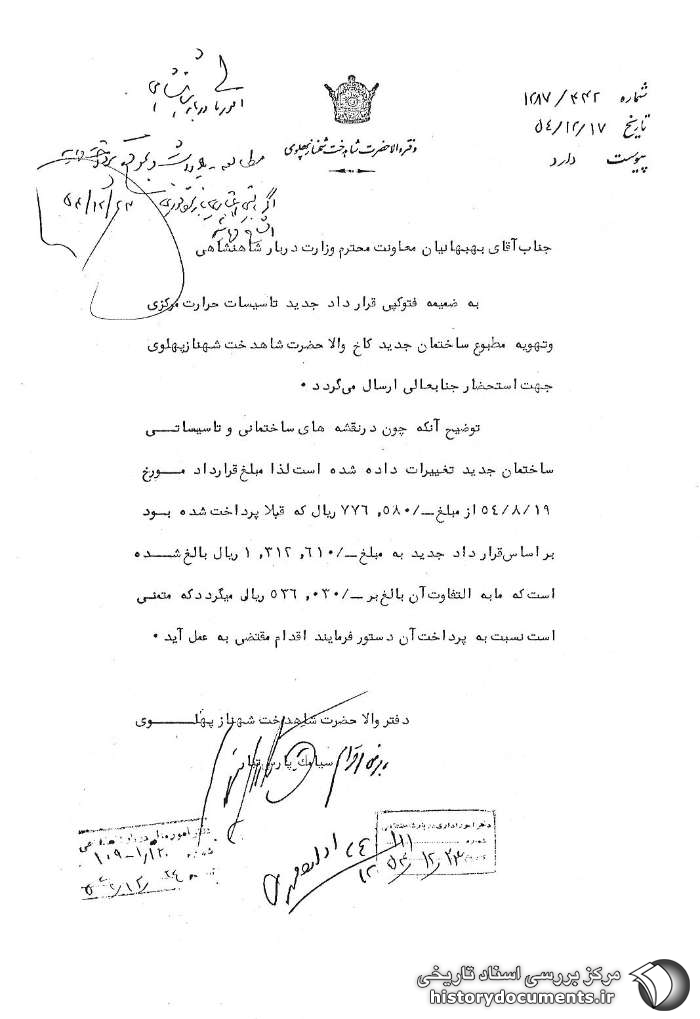 شماره ۱۲۸۷/۴۴۲
تاریخ ۵۴/۱۲/۱۷
پیوست دارد
دفتر والاحضرت شاهدخت شهناز پهلوی
جناب آقای بهبهانیان معاونت محترم وزارت دربار شاهنشاهی
به ضمیمه فتوکپی قرار داد جدید تاسیسات حرارت مرکزی
وتهویه مطبوع ساختمان جدید کاخ والا حضرت شاهدخت شهنازپهلوی
جهت استحضار جنابعالی ارسال می‌گردد .
توضیح آنکه چون درنقشه های ساختمانی و تاسیساتی
ساختمان جدید تغییرات داده شده است لذا مبلغ قرارداد مورخ
۵۴/۸/۱۹ از مبلغ ـ/۷۷٦,۵۸۰ ریال که قبلا پرداخت شده بود
بر اساس قرار داد جدید به مبلغ ـ/۱,۳۱۲,٦۱۰ ریال بالغ شده
است که مابه التفاوت آن بالغ بر ـ/۵۳٦,۰۳۰ ریالی میگردد که متمنی
است نسبت به پرداخت آن دستور فرمایند اقدام مقتضی به عمل آید .
دفتر والا حضرت شاهدخت شهناز پهلوی
سیامک پارس تبار
مرکز بررسی اسناد تاریخی
historydocuments.ir